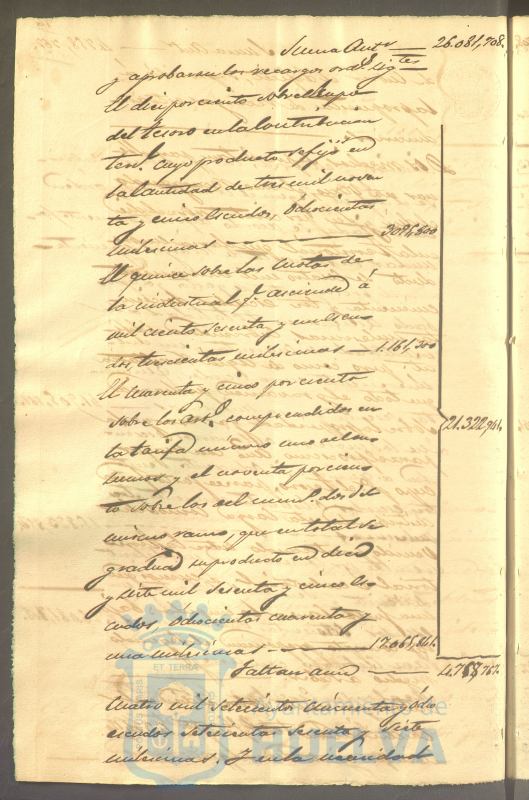 Suma Antr 26.081,708.
y aprobarse los recargos ords. sigtes
El diez por ciento sobre el cupo
del Tesoro en la Contribucion
terl. cuyo producto se fijó en
la Cantidad de tres mil noven
ta y cinco Escudos, Ochocientas
milesimas 3095,800
El quince sobre las Cuotas de
la industrial q. asciende á
mil ciento sesenta y un escu
dos, trescientas milesimas 1.161,300
El cuarenta y cinco por ciento
sobre los arts. comprendidos en
la tarifa numero uno de
y el noventa por cien
to sobre los del num. dos del
mismo ramo, que en total se
gradua su producto en diez
y siete mil sesenta y cinco Es
cudos Ochocientas cuarenta y
una milesimas 17.065,841. 21.322,941.
Faltan aun 4.758,767.
Cuatro mil setecientos cincuenta y ocho
escudos setecientas sesenta y siete
milesimas. Y en la necesidad
ET TERRÆ
Ayuntamiento de
HUELVA